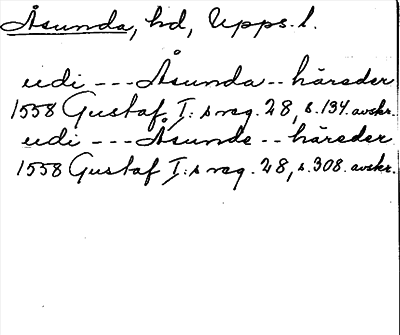 Åsunda, hd, Upps. l.
udi --- Åsunda -- häreder
1558 Gustaf I:s reg. 28, s. 134. avskr.
udi --- Åsunde -- häreder
1558 Gustaf I:s reg. 28, s. 308. avskr.